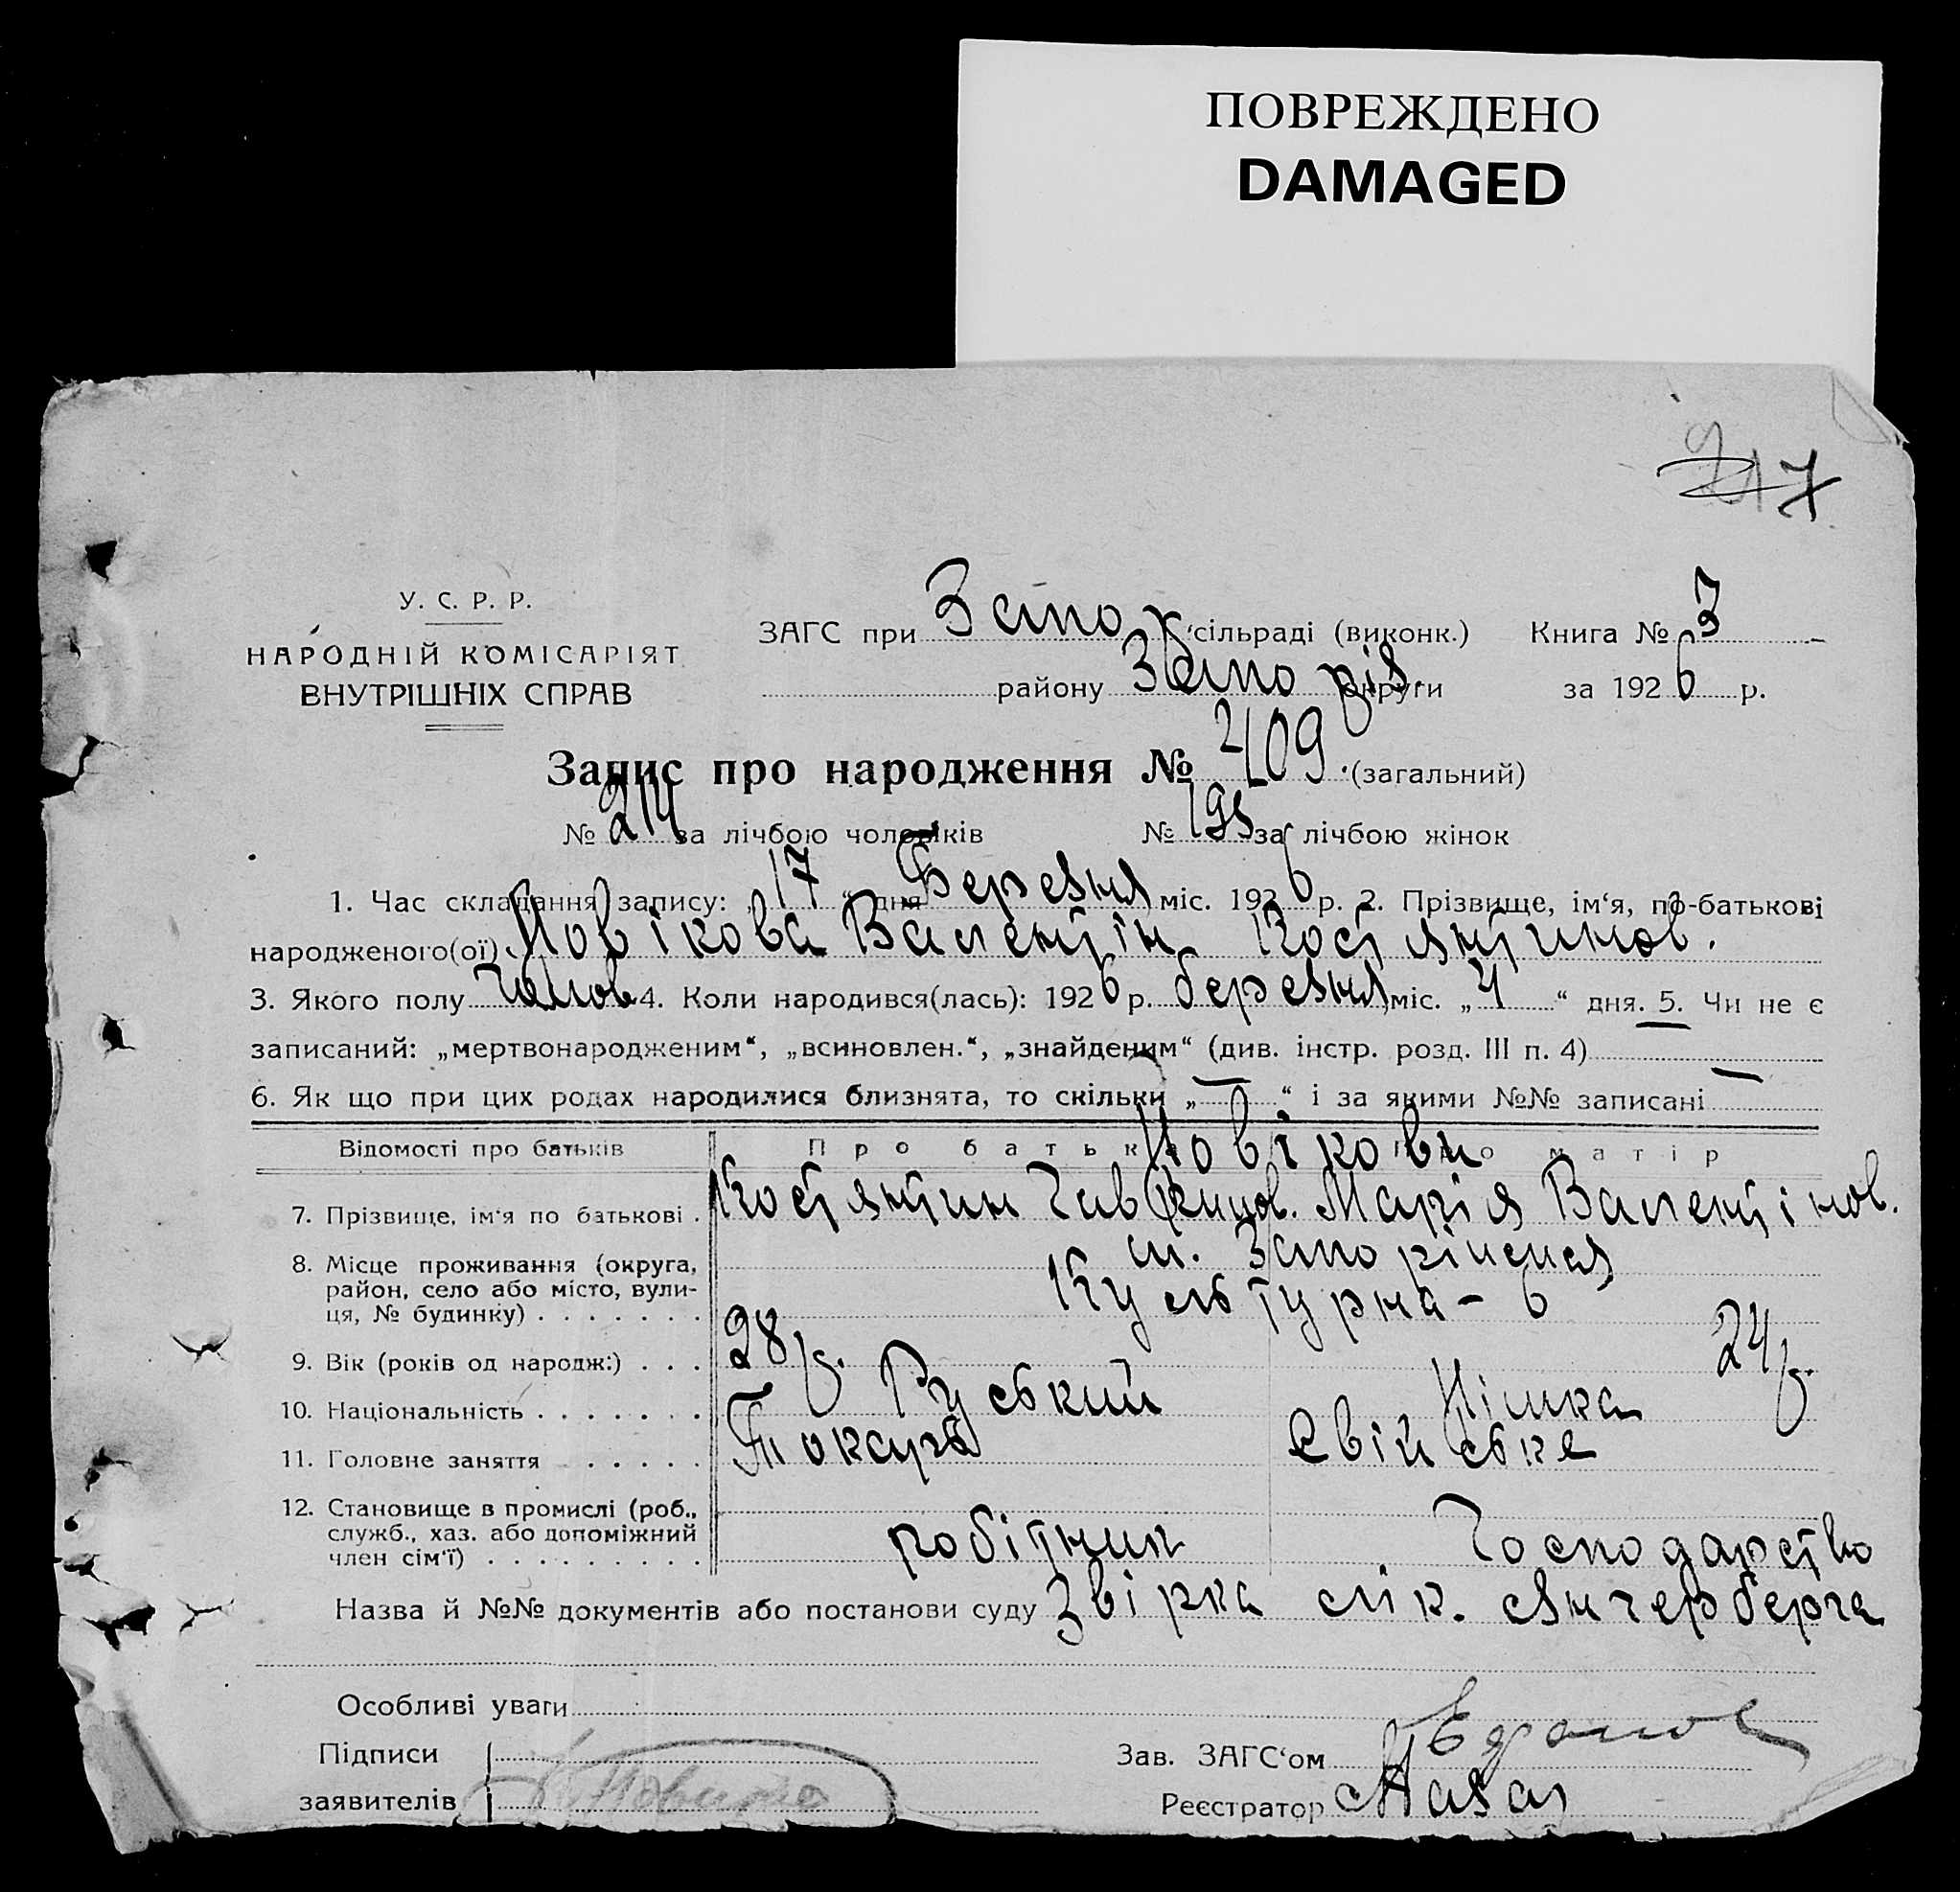 ПОВРЕЖДЕНО
DAMAGED
17
У. С. Р. Р.
НАРОДНІЙ КОМІСАРІЯТ
ВНУТРІШНІХ СПРАВ
ЗАГС при Запор. сільраді (виконк.) Книга № 3
району Запоріз. округи за 1926 р.
Запис про народження № 409. (загальний)
№ 214 за лічбою чоловіків № 195 за лічбою жінок
1. Час складання запису: „17“ дня Березня міс. 1926 р. 2. Прізвище, ім‘я, по-батькові
народженого(ої) Новікова Валентін Костянтинов.
3. Якого полу чолов 4. Коли народився(лась): 1926 р. березня міс. „4“ дня. 5. Чи не є
записаний: „мертвонародженим“, „всиновлен.“, „знайденим“ (див. інстр. розд. III п. 4) —
6. Як що при цих родах народилися близнята, то скільки „—“ і за якими №№ записані —
Відомості про батьків Про батька Про матір
Новікови
7. Прізвище, ім‘я по батькові . Костянтин Марія Валентінов.
8. Місце проживання (округа, район, село або місто, вулиця, № будинку) . . . . . . . м. Запоріжжя
Культурна – 6
9. Вік (років од народж:) . . . 28 р. 24 р.
10. Національність . . . . . . . Руський Німка
11. Головне заняття . . . . . Токарь Свійське
12. Становище в промислі (роб., служб., хаз. або допоміжний член сім‘ї) . . . . . . . . . робітник Господарство
Назва й №№ документів або постанови суду Звірка лік.
Особливі уваги
Підписи
заявителів
Зав. ЗАГС‘ом
Реєстратор